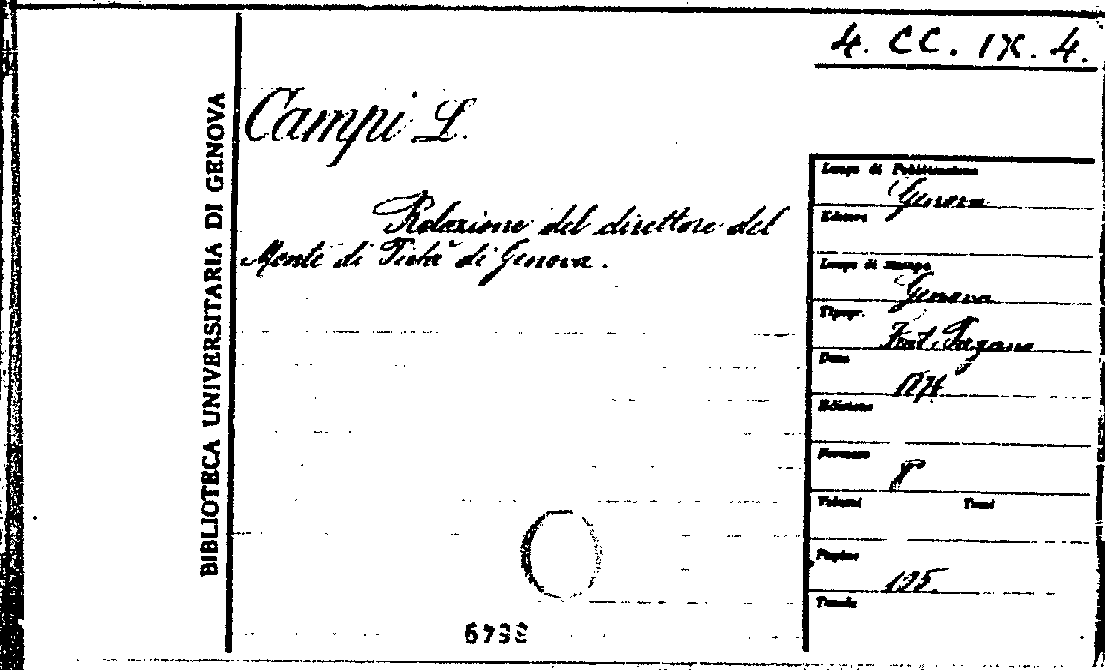 4. CC. IX. 4.
BIBLIOTECA UNIVERSITARIA DI GENOVA
Campi L.
Relazione del direttore del
Monte di Pietà di Genova.
Luogo di Pubblicazione
Genova
Editore
Luogo di stampa
Genova
Tipogr.
Frat. Pagano
Data
Edizione
Formato
8°
Volumi Tomi
Pagine
105.
Tavole